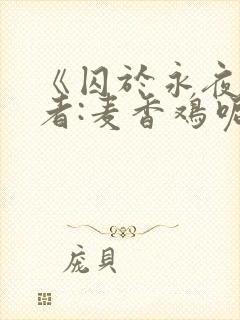 《囚於永夜
者:麦香鸡呢
庞貝